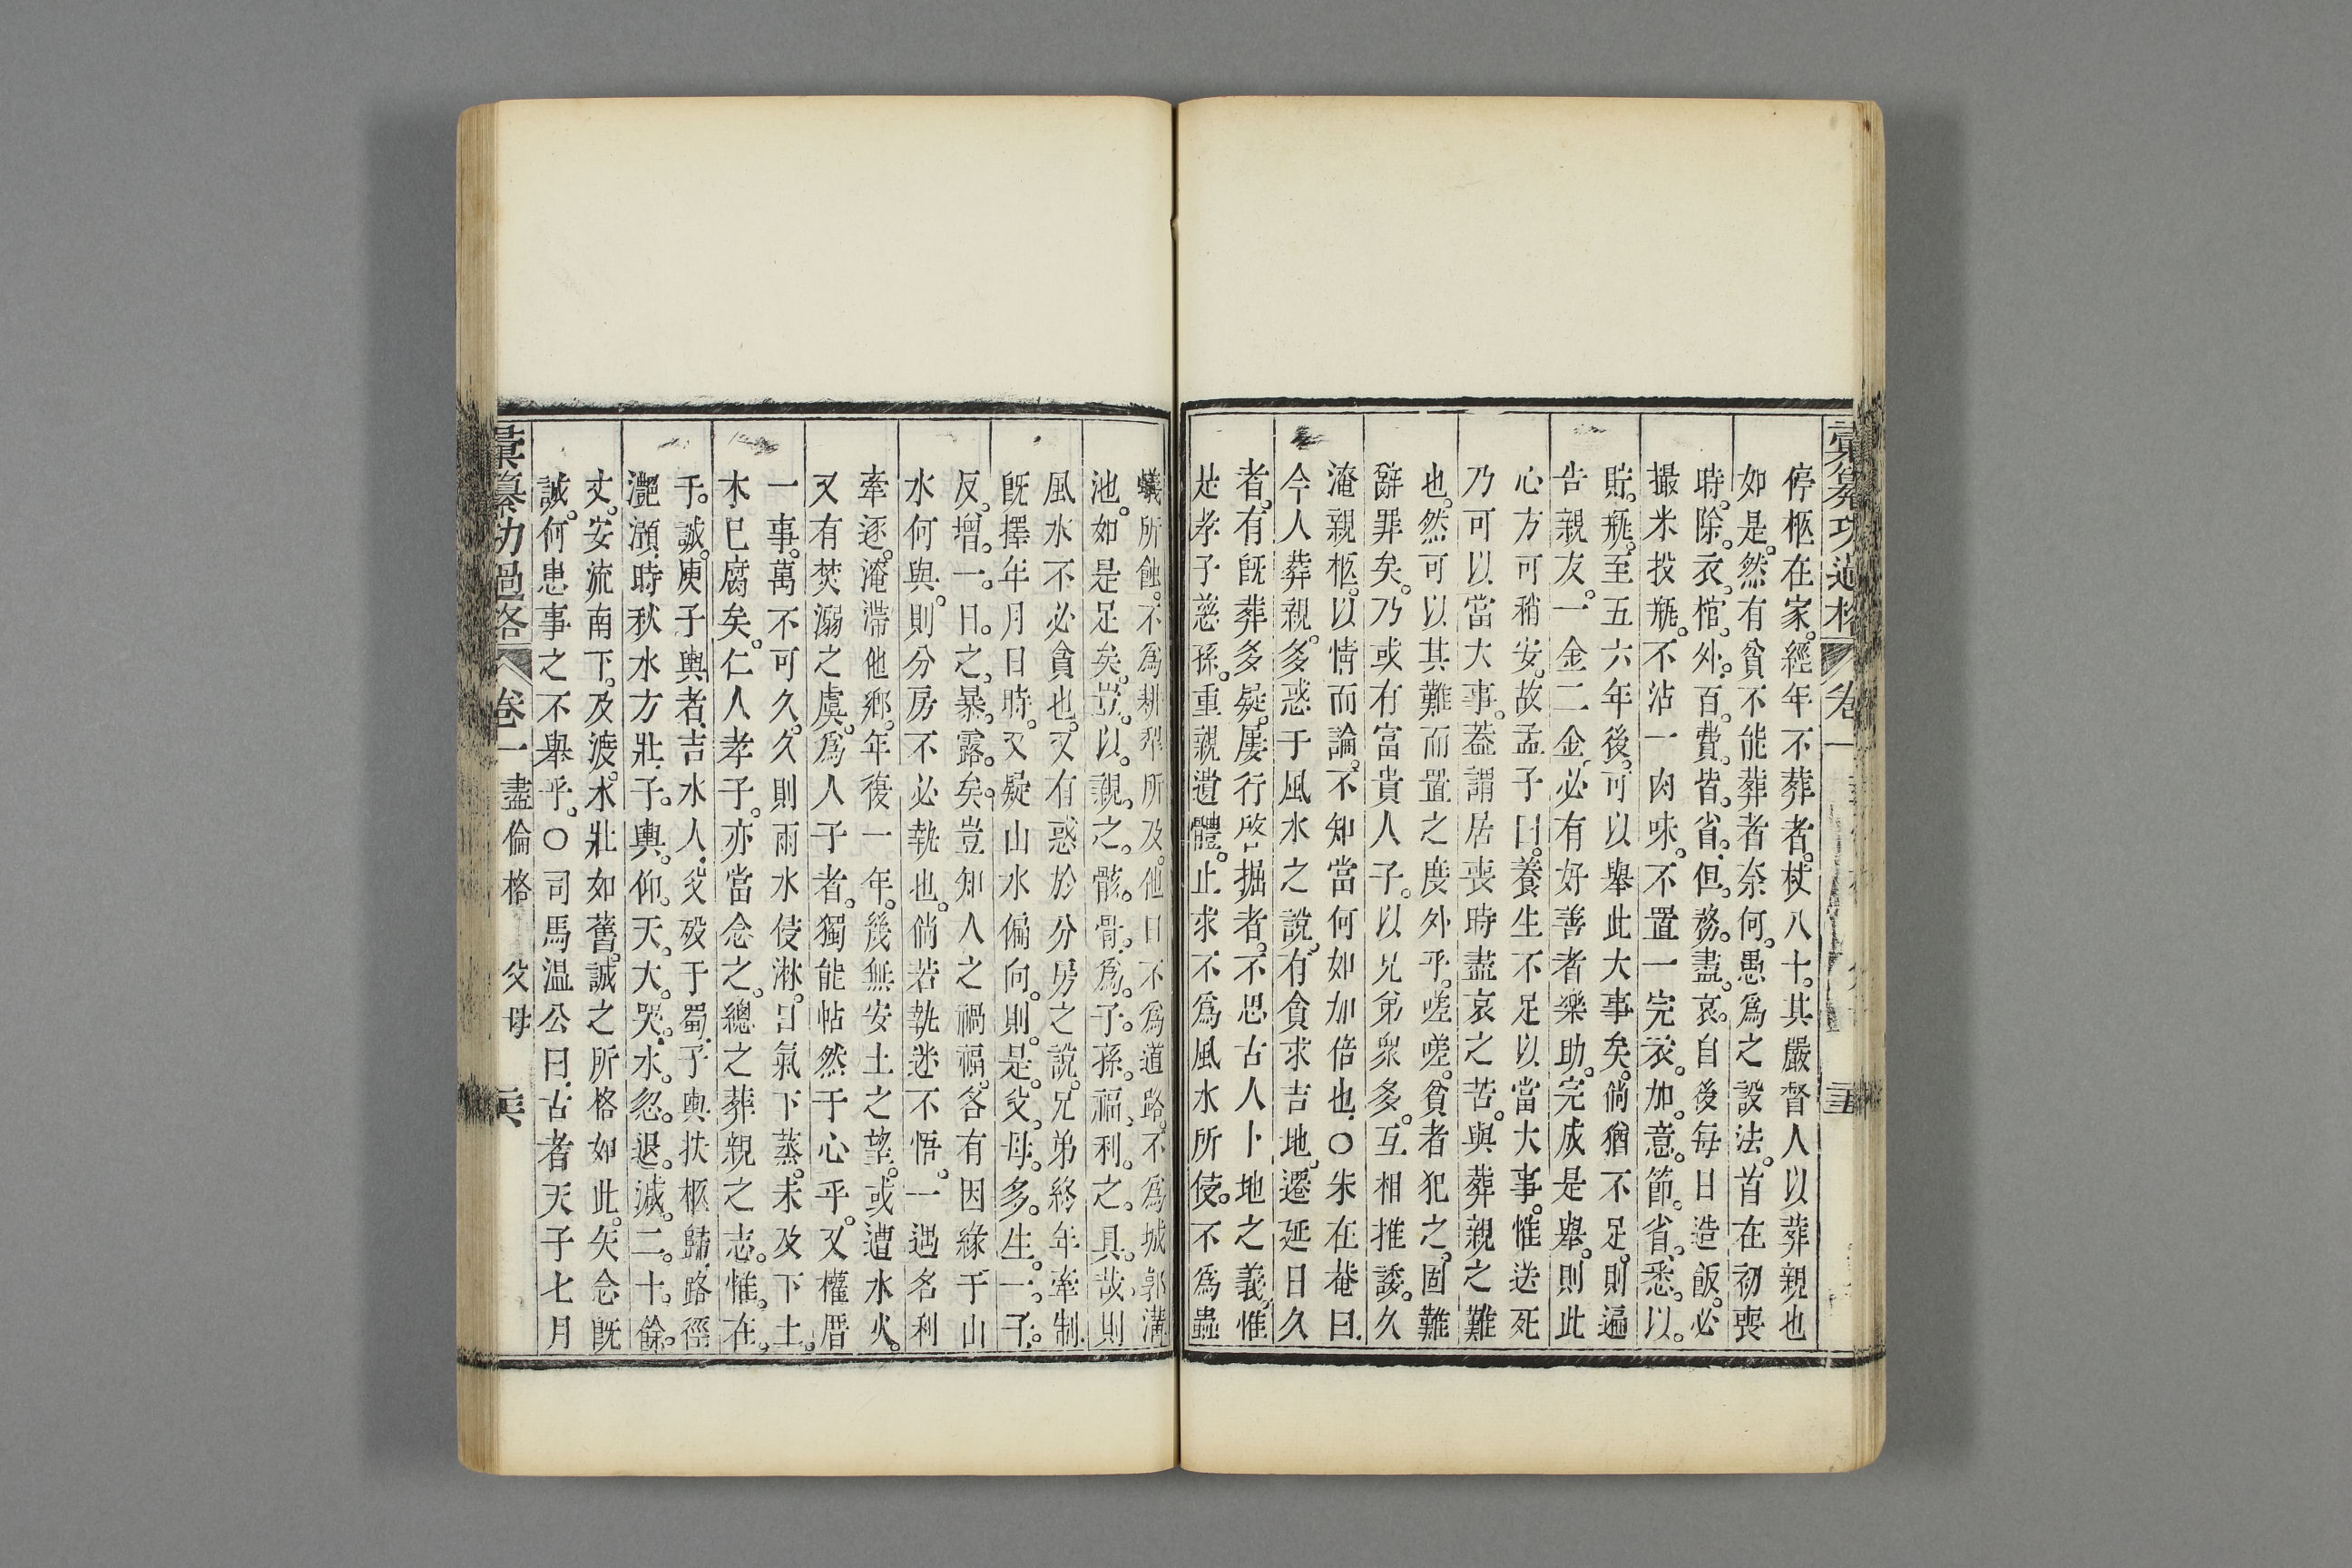 彙纂功過格 卷一
停柩在家。經年不葬者。杖八十。其嚴督人以葬親也
如是。然有貧不能葬者奈何。愚爲之設法。首在初喪
時。除。衣。棺。外。百。費。皆。省。但。務。盡。哀。自後每日造飯。必
撮米投瓶。不沾一肉味。不置一完衣。加。意。節。省。悉。以。
貯。瓶。至五六年後。可以舉此大事矣。倘猶不足。則遍
告親友。一金二金。必有好善者樂助。完成是舉。則此
心方可稍安。故孟子曰。養生不足以當大事。惟送死
乃可以當大事。葢謂居喪時盡哀之苦。與葬親之難
也。然可以其難而置之度外乎。嗟嗟。貧者犯之。固難
辭罪矣。乃或有富貴人子。以兄弟衆多。互相推諉。久
淹親柩。以情而論。不知當何如加倍也。○朱在菴曰。
今人葬親。多惑于風水之說。有貪求吉地。遷延日久
者。有旣葬多疑。屢行啓掘者。不思古人卜地之義。惟
是孝子慈孫。重親遺體。止求不爲風水所使。不爲蟲
蟻所蝕。不爲耕犁所及。他日不爲道路。不爲城郭溝
池。如是足矣。豈。以。親。之。骸。骨。爲。子。孫。福。利。之。具。哉。則
風水不必貪也。又有惑於分房之說。兄弟終年牽制。
旣擇年月日時。又疑山水偏向。則。是。父。母。多。生。一。子。
反。增。一。日。之。暴。露。矣。豈知人之禍福。各有因緣于山
水何與。則分房不必執也。倘若執迷不悟。一遇名利
牽逐。淹滯他鄉。年復一年。幾無安土之望。或遭水火。
又有焚溺之虞。爲人子者。獨能帖然于心乎。又權厝
一事。萬不可久。久則雨水侵淋。日氣下蒸。未及下土。
木巳腐矣。仁人孝子。亦當念之。總之葬親之志。惟。在。
于。誠。庾子輿者。吉水人。父歿于蜀。子輿扶柩歸。路徑
灔澦。時秋水方壯。子。輿。仰。天。大。哭。水。忽。退。減。二。十。餘。
丈。安流南下。及渡。水壯如舊。誠之所格如此。矢念旣
誠。何患事之不舉乎。○司馬温公曰。古者天子七月
彙纂功過格 卷一 盡倫格 父母